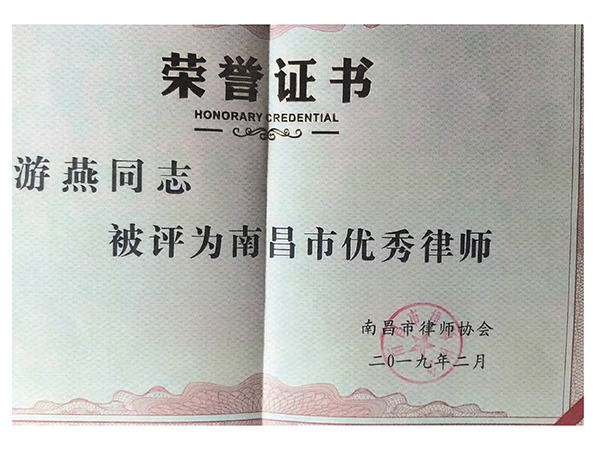 荣誉证书
HONORARY CREDENTIAL
游燕同志
被评为南昌市优秀律师
南昌市律师协会
二〇一九年二月